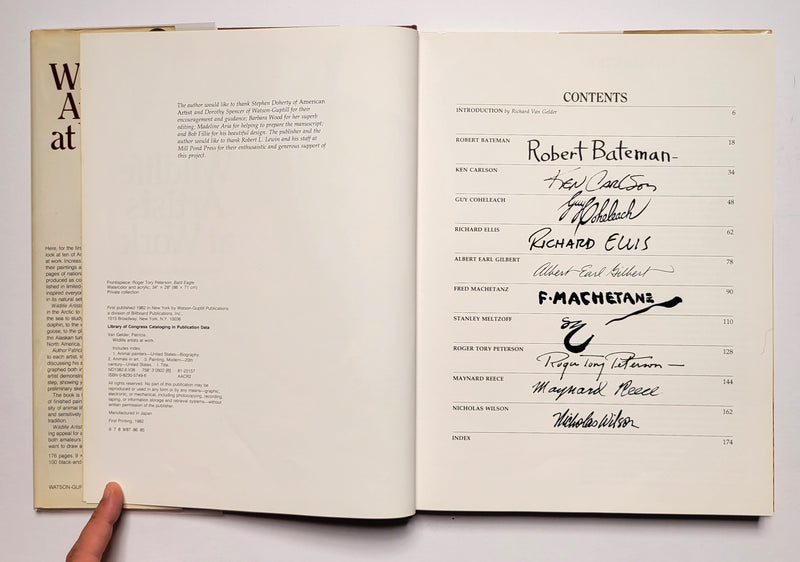 W
A
at
Here, for the first
look at ten of A
at work. Increas
their paintings a
pages of nationa
produced as co
lished in limited
inspired everyon
in its natural set
Wildlife Artists
in the Arctic to
the sea to study
dolphin, to the
goose, to the pl
the Alaskan tun
North America.
Author Patrici
to each artist, i
discussing his s
graphed both in
artist demonstra
step, showing y
preliminary sket
The book is f
of finished pain
sity of animal lif
and sensitively
tradition.
Wildlife Artists
ing appeal for a
both amateurs
want to draw a
176 pages. 9 ×
100 black-and-
WATSON-GUP
The author would like to thank Stephen Doherty of American
Artist and Dorothy Spencer of Watson-Guptill for their
encouragement and guidance; Barbara Wood for her superb
editing; Madeline Aria for helping to prepare the manuscript;
and Bob Fillie for his beautiful design. The publisher and the
author would like to thank Robert L. Lewin and his staff at
Mill Pond Press for their enthusiastic and generous support of
this project.
Frontispiece: Roger Tory Peterson, Bald Eagle
Watercolor and acrylic, 34" × 28" (86 × 71 cm)
Private collection
First published 1982 in New York by Watson-Guptill Publications,
a division of Billboard Publications, Inc.
1515 Broadway, New York, N.Y. 10036
Library of Congress Cataloging in Publication Data
Van Gelder, Patricia.
Wildlife artists at work.
Includes index.
1. Animal painters—United States—Biography.
2. Animals in art. 3. Painting, Modern—20th
century—United States. I. Title.
ND1380.V36 758'.3'0922 [B] 81-23157
ISBN 0-8230-5749-6 AACR2
All rights reserved. No part of this publication may be
reproduced or used in any form or by any means—graphic,
electronic, or mechanical, including photocopying, recording,
taping, or information storage and retrieval systems—without
written permission of the publisher.
Manufactured in Japan
First Printing, 1982
CONTENTS
INTRODUCTION by Richard Van Gelder 6
ROBERT BATEMAN 18
Robert Bateman
KEN CARLSON 34
Ken Carlson
GUY COHELEACH 48
Guy Coheleach
RICHARD ELLIS 62
RICHARD ELLIS
ALBERT EARL GILBERT 78
Albert Earl Gilbert
FRED MACHETANZ 90
F. MACHETANZ
STANLEY MELTZOFF 110
ROGER TORY PETERSON 128
Roger Tory Peterson
MAYNARD REECE 144
Maynard Reece
NICHOLAS WILSON 162
Nicholas Wilson
INDEX 174